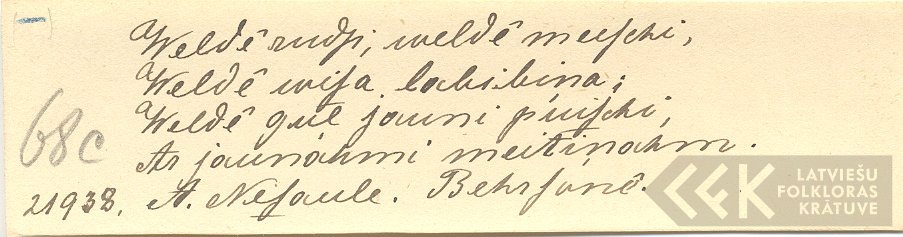 Weldê rudsi, weldê meeschi,
Weldê wisa labibina;
68c
Weldê gul jauni puischi,
Ar jaunahmi meitinahm.
21938. A. Nesaule. Behrsonê.
LATVIEŠU
FOLKLORAS
KRĀTUVE